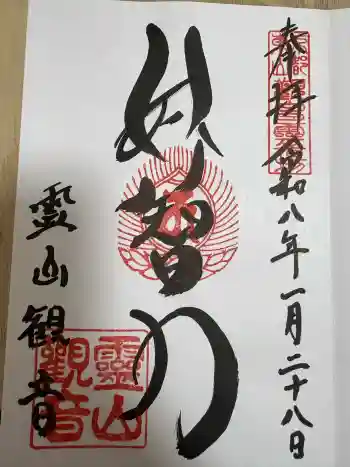 奉拝 令和八年一月二十八日
妙智力
霊山観音
靈山觀音